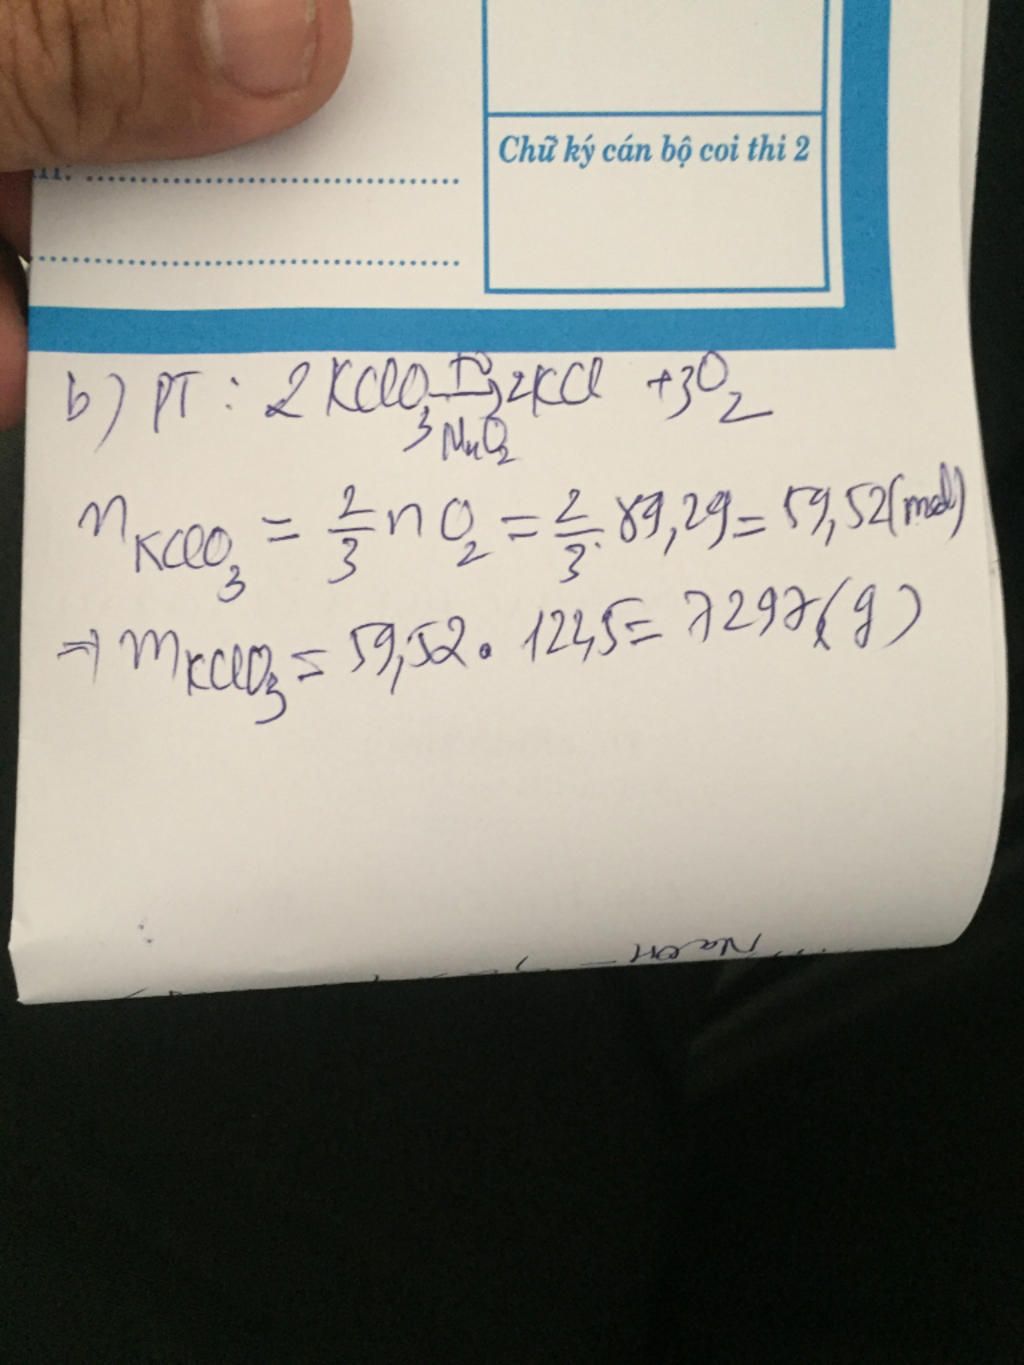 Chữ ký cán bộ coi thi 2
b) PT: 2KClO₃ $\xrightarrow[MnO_2]{t^o}$ 2KCl + 3O₂
n_{KClO₃} = \frac{2}{3} nO₂ = \frac{2}{3} . 89,29 = 59,52 (mol)
=> m_{KClO₃} = 59,52 . 122,5 = 7297, (g)
NaOH